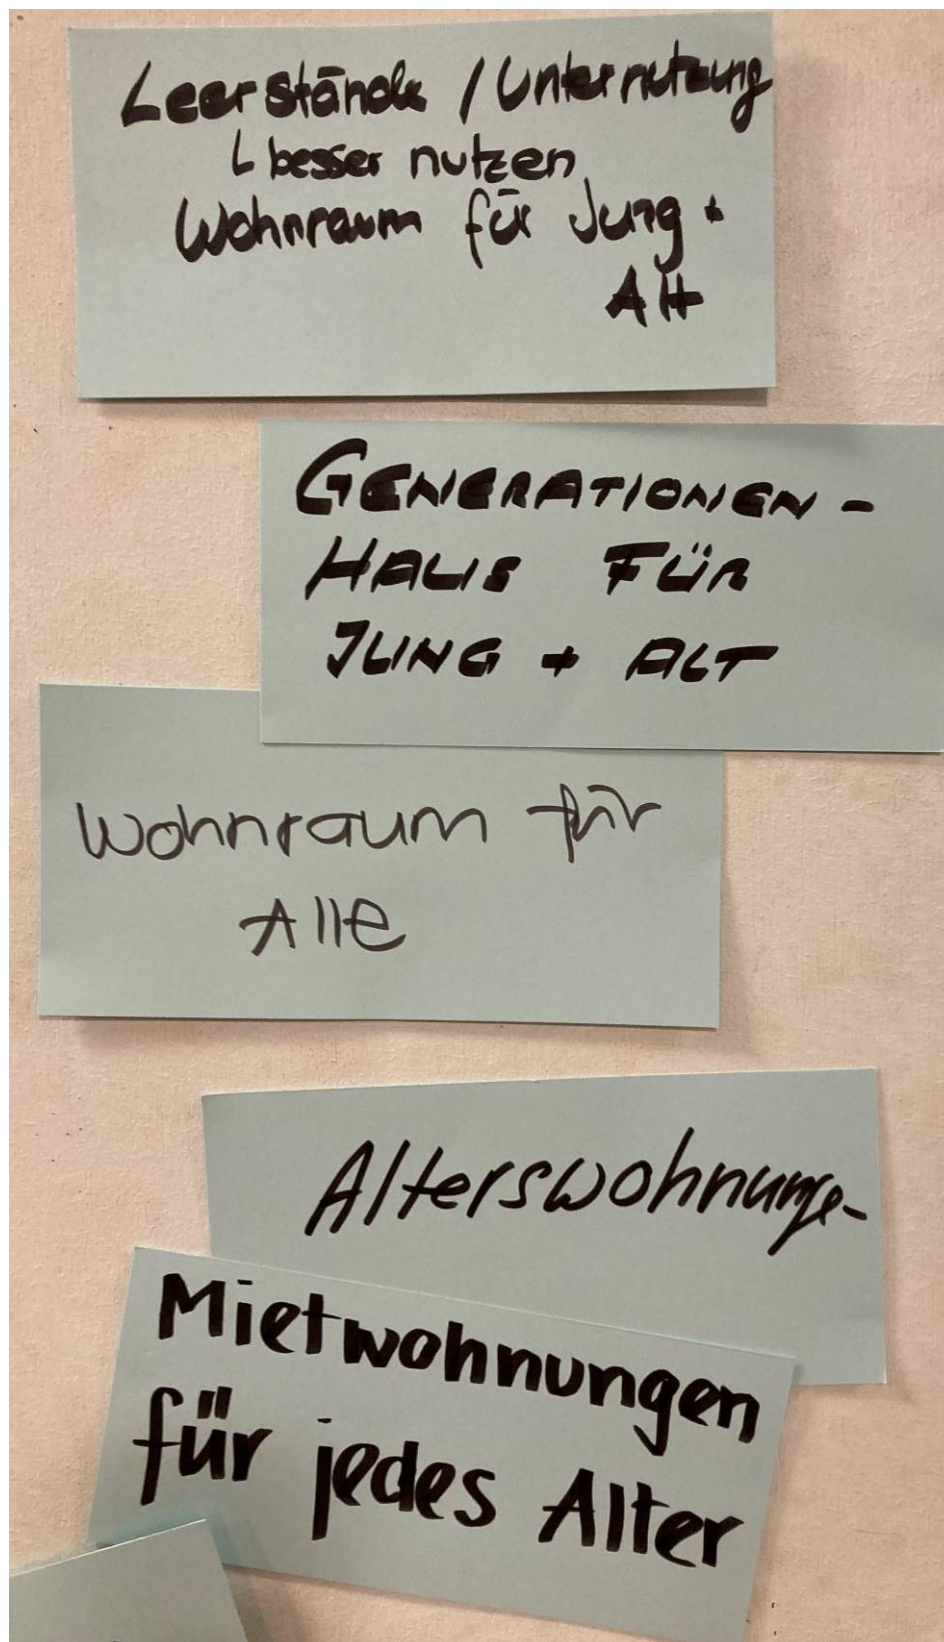 Leerstände / Unternutzung
↳ besser nutzen
Wohnraum für Jung +
Alt
GENERATIONEN -
HAUS FÜR
JUNG + ALT
Wohnraum für
Alle
Alterswohnunge-
Mietwohnungen
für jedes Alter